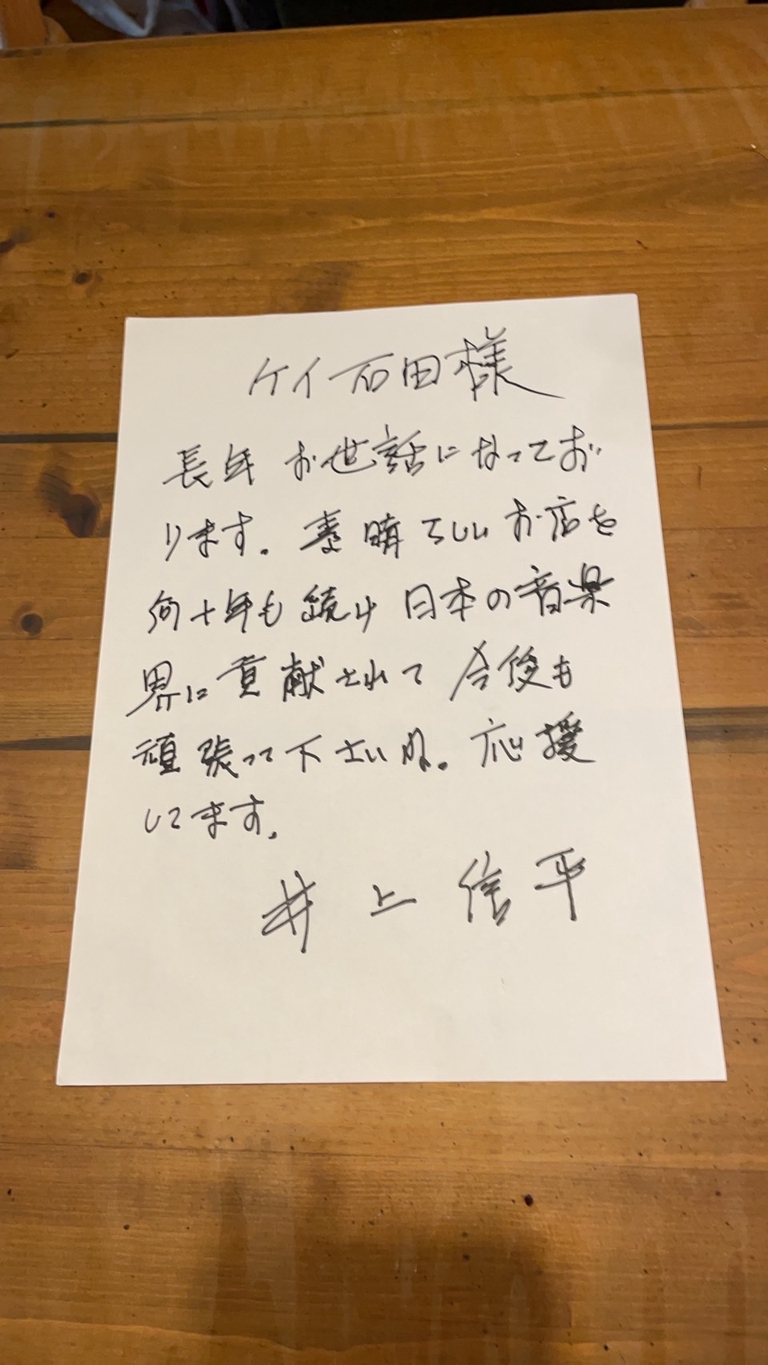 ケイ石田様
長年お世話になってお
ります。素晴らしいお店を
何十年も続け日本の音楽
界に貢献されて今後も
頑張って下さいね。応援
してます。
井上信平